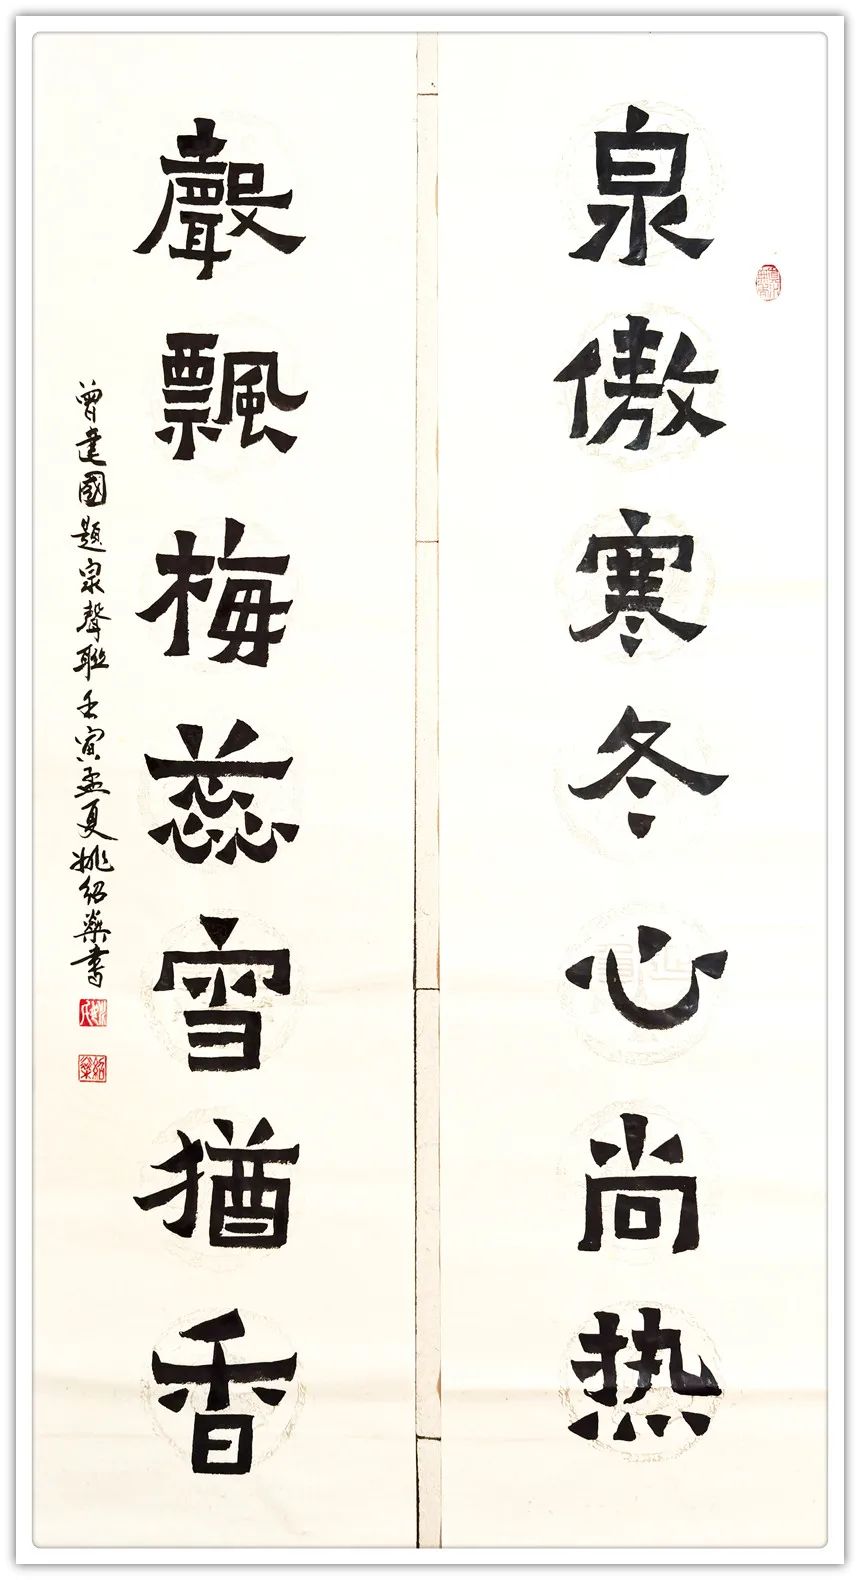 泉傲寒冬心尚热
聲飄梅蕊雪猶香
曾建國題泉聲聯壬寅孟夏姚紹燊書